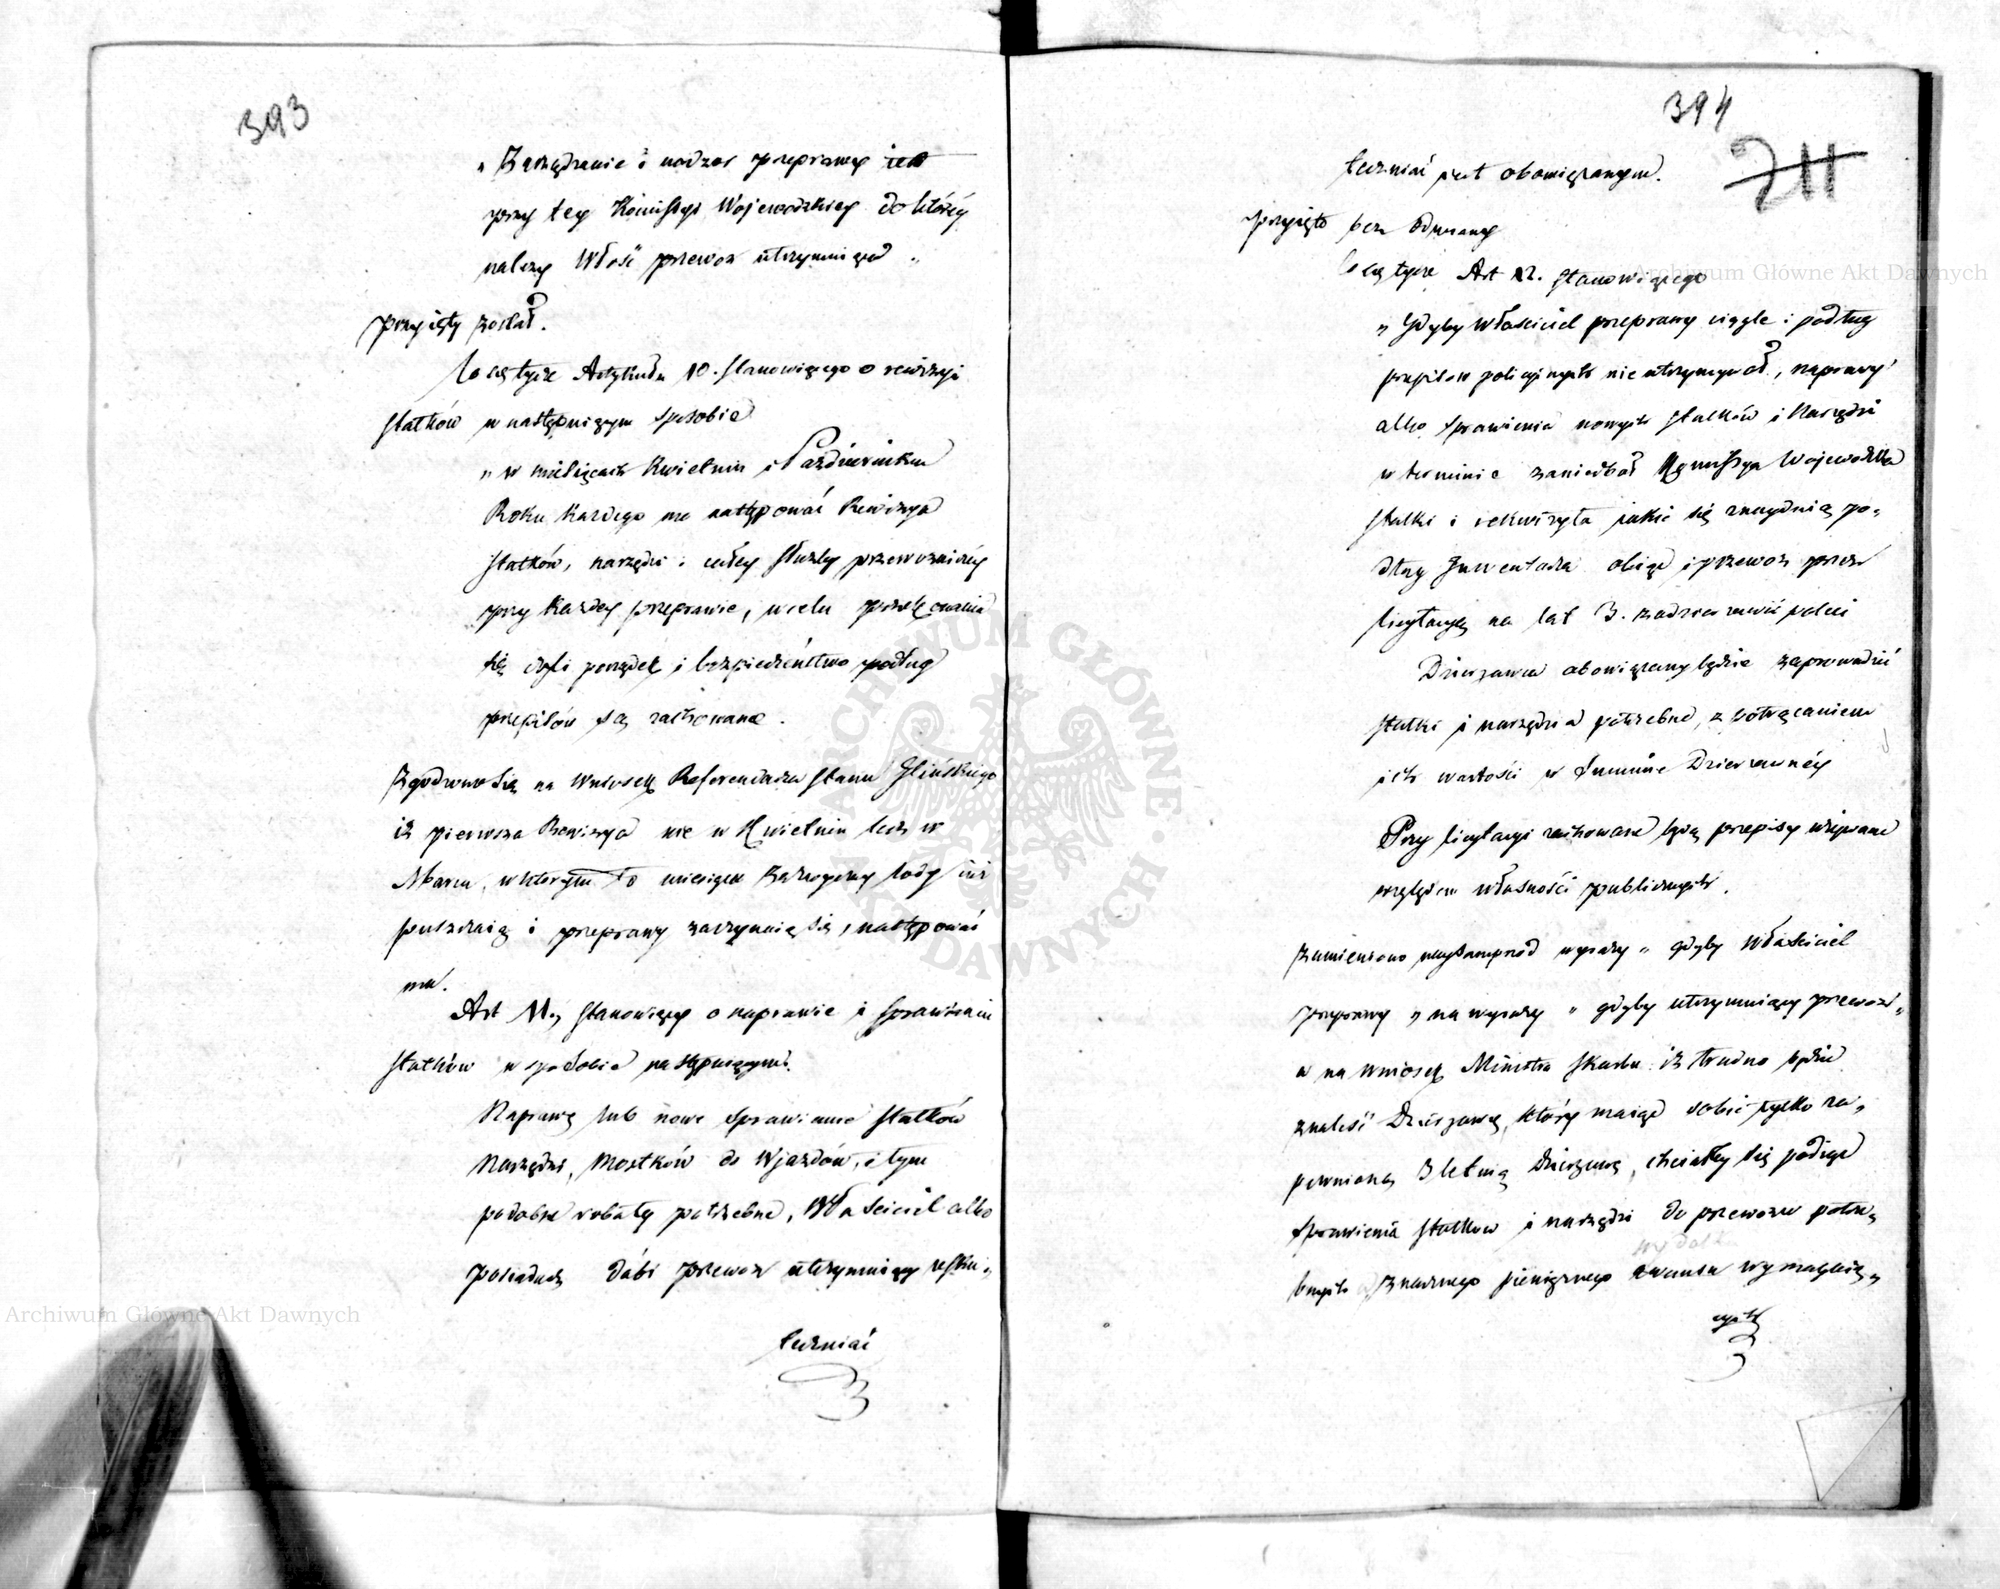 393
„ Zarządzanie i nadzor przeprawy iest
przy tey Kommissyi Woiewodzkiey do którey
należy Włość przewoz utrzymuiąca „
przyięty został.
Co się tycze Artykułu 10. stanowiącego o rewizyi
statków w następuiącym sposobie
„ w miesiącach Kwietniu i Październiku
Roku każdego ma następować Rewizya
statków, narzędzi i całey służby przewozniczey
przy każdey przeprawie, w celu przekonania
się czyli porządek i bezpieczeństwo podług
przepisów są zachowane.
Zgodzono się na wniosek Referendarza Stanu Glińskiego
iż pierwsza Rewizya nie w Kwietniu lecz w
Marcu, w którym to miesiącu zazwyczay lody iuż
puszczaią i przeprawy zaczynaią się, następować
ma.
Art 11., stanowiący o naprawie i sprawianiu
statków w sposobie następuiącym.
Naprawę lub nowe sprawianie statków
Narzędzi, Mostków do Wjazdów, i tym
podobne roboty potrzebne, Właściciel albo
Posiadacz dóbr przewoz utrzymuiący usku„
teczniać
394
211
teczniać iest obowiązanym.
przyięto bez odmiany
Co się tycze Art 12. stanowiącego
„ Gdyby Właściciel przeprawy ciągle i podług
przepisow policyinych nie utrzymywał, naprawy
albo sprawienia nowych statków i Narzędzi
w terminie zaniedbał Kommissya Woiewodzka
statki i rekwizyta iakie się znayduią po„
dług Inwentarza obiąć i przewoz przez
licytacyą na lat 3. zadzierżawić poleci
Dzierzawca obowiązany będzie zaprowadzić
statki i narzędzia potrzebne, z potrąceniem
ich wartości w Summie Dzierzawney
Przy licytacyi zachowane będą przepisy używane
względem własności publicznych.
Zamieniono naysamprzod wyrazy „ gdyby Właściciel
przeprawy „ na wyrazy „ gdyby utrzymuiący przewoz„
a na wniosek Ministra Skarbu iż trudno będzie
znaleść Dzierzawcę, który maiąc sobie tylko za„
pewnioną 3 letnią Dzierzawę, chciałby się podiąć
sprawienia statkow i narzędzi do przewozu potrze„
bnych znacznego pienięznego awansu wymagaią„
cych